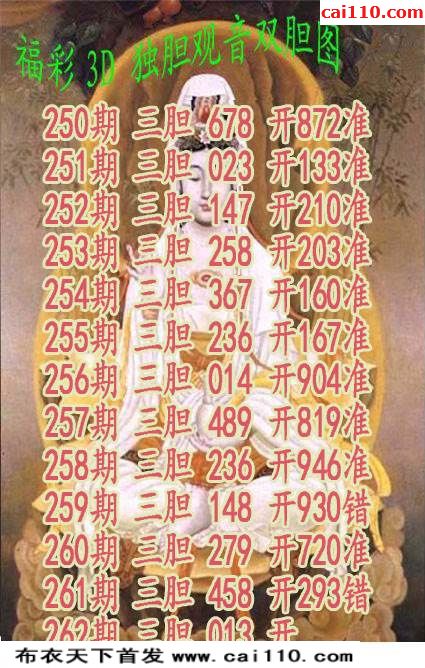 彩民乐园
cai110.com
福彩 3D 独胆观音双胆图
250期 三胆 678 开872准
251期 三胆 023 开133准
252期 三胆 147 开210准
253期 三胆 258 开203准
254期 三胆 367 开160准
255期 三胆 236 开167准
256期 三胆 014 开904准
257期 三胆 489 开819准
258期 三胆 236 开946准
259期 三胆 148 开930错
260期 三胆 279 开720准
261期 三胆 458 开293错
262期 三胆 013 开
布衣天下首发 www.cai110.com